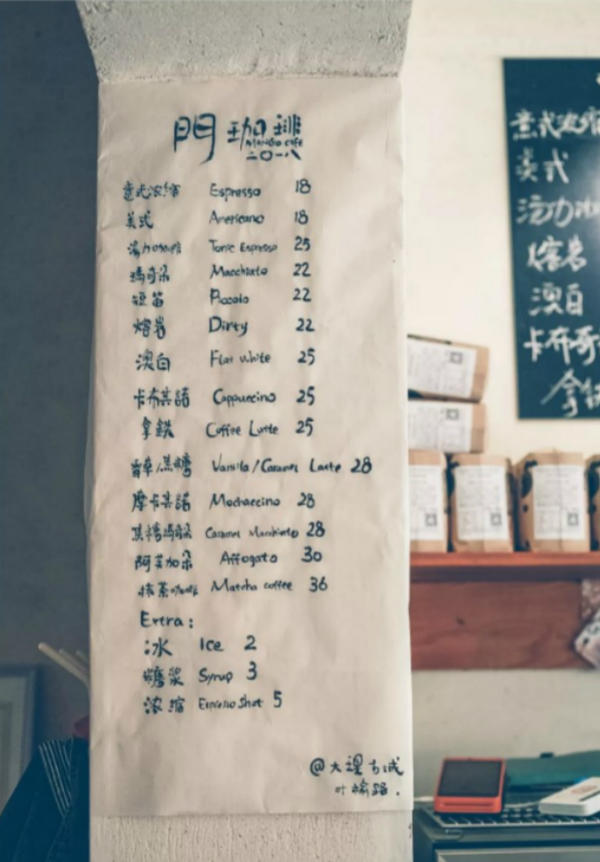 門珈琲
二〇一八
意式浓缩 Espresso 18
美式 Americano 18
汤力咖啡 Tonic Espresso 25
瑪奇朵 Macchiato 22
短笛 Piccolo 22
熔岩 Dirty 22
澳白 Flat white 25
卡布其諾 Cappuccino 25
拿鉄 Coffee Latte 25
香草/焦糖 Vanilla/Caramel Latte 28
摩卡其諾 Mochaccino 28
焦糖瑪朵 Caramel Macchiato 28
阿芙加朵 Affogato 30
抹茶咖啡 Matcha coffee 36
Extra:
冰 Ice 2
糖漿 Syrup 3
浓缩 Espresso Shot 5
@大理古城
叶榆路.
意式浓缩
美式
汤力咖
熔岩
澳白
卡布奇
拿铁